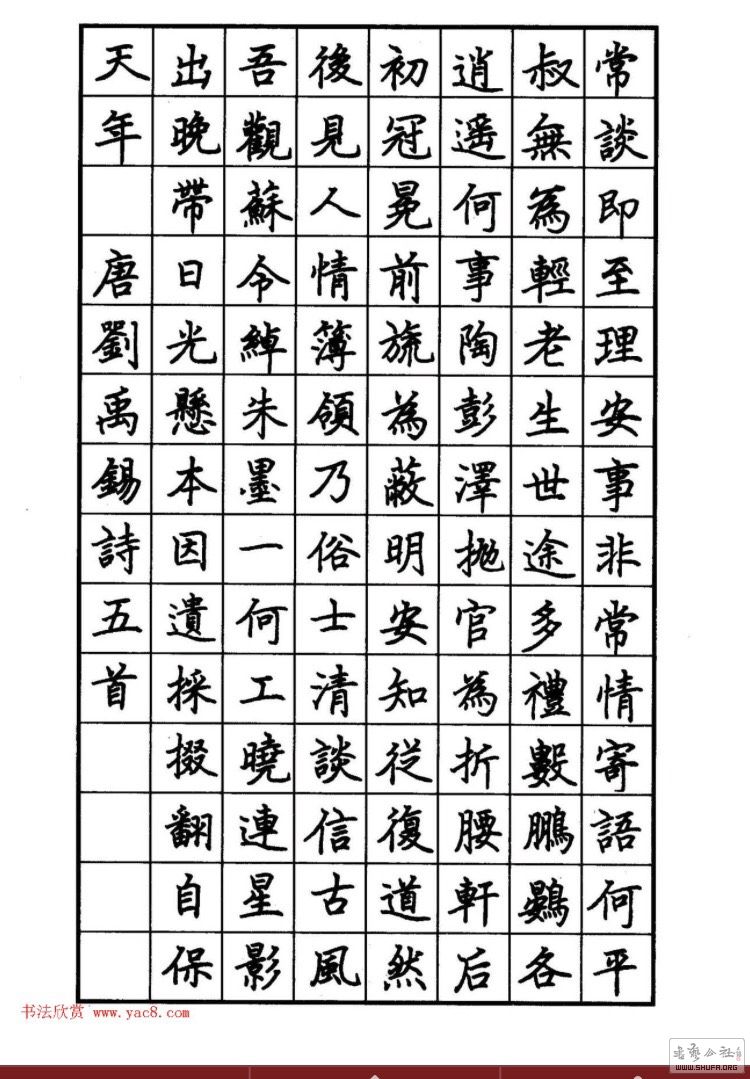 常談即至理安事非常情寄語何平
叔無為輕老生世途多禮數鵬鷃各
逍遙何事陶彭澤拋官為折腰軒后
初冠冕前旒為蔽明安知從復道然
後見人情簿領乃俗士清談信古風
吾觀蘇令綽朱墨一何工曉連星影
出晚帶日光懸本因遺採掇翻自保
天年 唐劉禹錫詩五首
书法欣赏 www.yac8.com
WWW.SHUFA.ORG